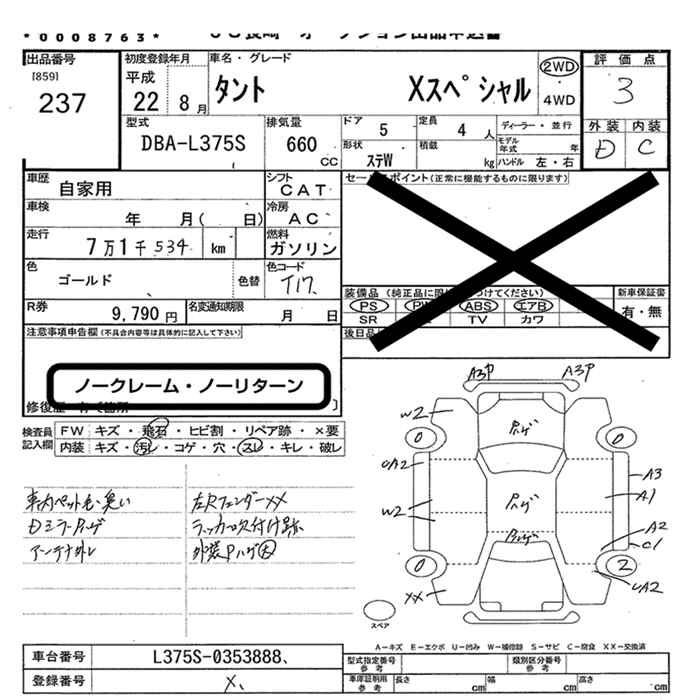 *0008763*
出品番号
[859]
237
初度登録年月
平成
22 8月
車名・グレード
タント Xスペシャル
2WD
・
4WD
評価点
3
外装 内装
D C
型式
DBA-L375S
排気量
660
cc
ドア
5
定員
4 人
形状
ステW
積載
kg
ディーラー・並行
モデル年式 年
ハンドル 左・右
車歴
自家用
シフト
CAT
車検
年 月( 日)
冷房
AC
走行
7万1千534 km
燃料
ガソリン
色
ゴールド
色替
色コード
T17
R券
9,790円
名変通知期限
月 日
セールスポイント(正常に機能するものに限ります)
装備品
PS ABS エアB
SR TV カワ
新車保証書
有・無
後日品
注意事項申告欄(不具合内容等は具体的に記入して下さい)
ノークレーム・ノーリターン
検査員
記入欄
FW キズ・飛石・ヒビ割・リペア跡・×要
内装 キズ・汚レ・コゲ・穴・スレ・キレ・破レ
車内ペット毛・臭い
Dミラーハゲ
アンテナ外レ
左Rフェンダーxx
ラッカー吹付け跡
外装Pハゲ大
A3P A3P
W2
Pハゲ
0 0
UA2
A3
Pハゲ
A1
W2
A2
Pハゲ
C1
0 2
UA2
XX
スペア
A-キズ E-エクボ U-凹み W-補修跡 S-サビ C-腐食 XX-交換済
車台番号
L375S-0353888
登録番号
型式指定番号
参考
類別区分番号
参考
車庫証明用
参考
長さ cm
幅 cm
高さ cm